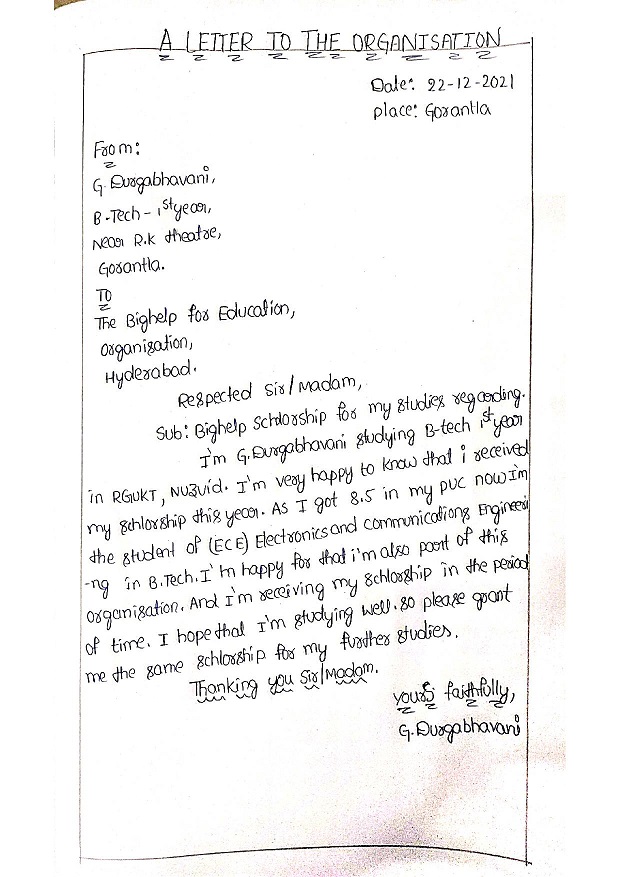 A LETTER TO THE ORGANISATION
Date: 22-12-2021
place: Gorantla
From:
G. Durgabhavani,
B-Tech - 1st year,
Near R.K theatre,
Gorantla.
TO
The Bighelp for Education,
Organization,
Hyderabad.
Respected Sir/Madam,
Sub: Bighelp Schlorship for my studies regarding.
I'm G.Durgabhavani studying B-tech 1st year
in RGIUKT, NUZvid. I'm very happy to know that i received
my schlorship this year. As I got 8.5 in my PUC now I'm
the student of (ECE) Electronics and communications Engineeri
-ng in B.Tech. I'm happy for that i'm also part of this
organisation. And I'm receiving my schlorship in the period
of time. I hope that I'm studying well. so please grant
me the same schlorship for my further studies.
Thanking you Sir/Madam.
yours faithfully,
G.Durgabhavani